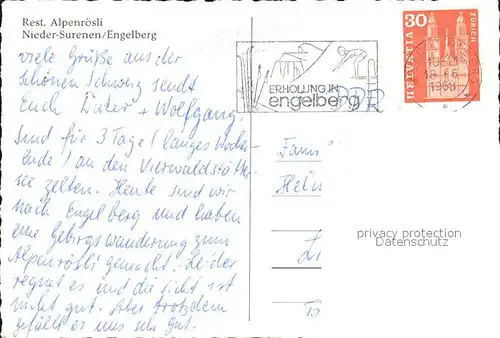 Rest. Alpenrösli
Nieder-Surenen/Engelberg
viele Grüße aus der
schönen Schweiz sendt
Euch Dieter + Wolfgang!
Sind für 3 Tage (langes Wochen-
ende) an den Vierwaldstätter-
see zelten. Heute sind wir
nach Engelberg und haben
eine Gebirgswanderung zum
Alpenrösli gemacht. Leider
regnet es und die Sicht ist
nicht gut. Aber trotzdem
gefällt es uns sehr gut.
ERHOLUNG IN
engelberg
DDR
30
HELVETIA
ZÜRICH
1968
Fam
Helm
privacy protection
Datenschutz